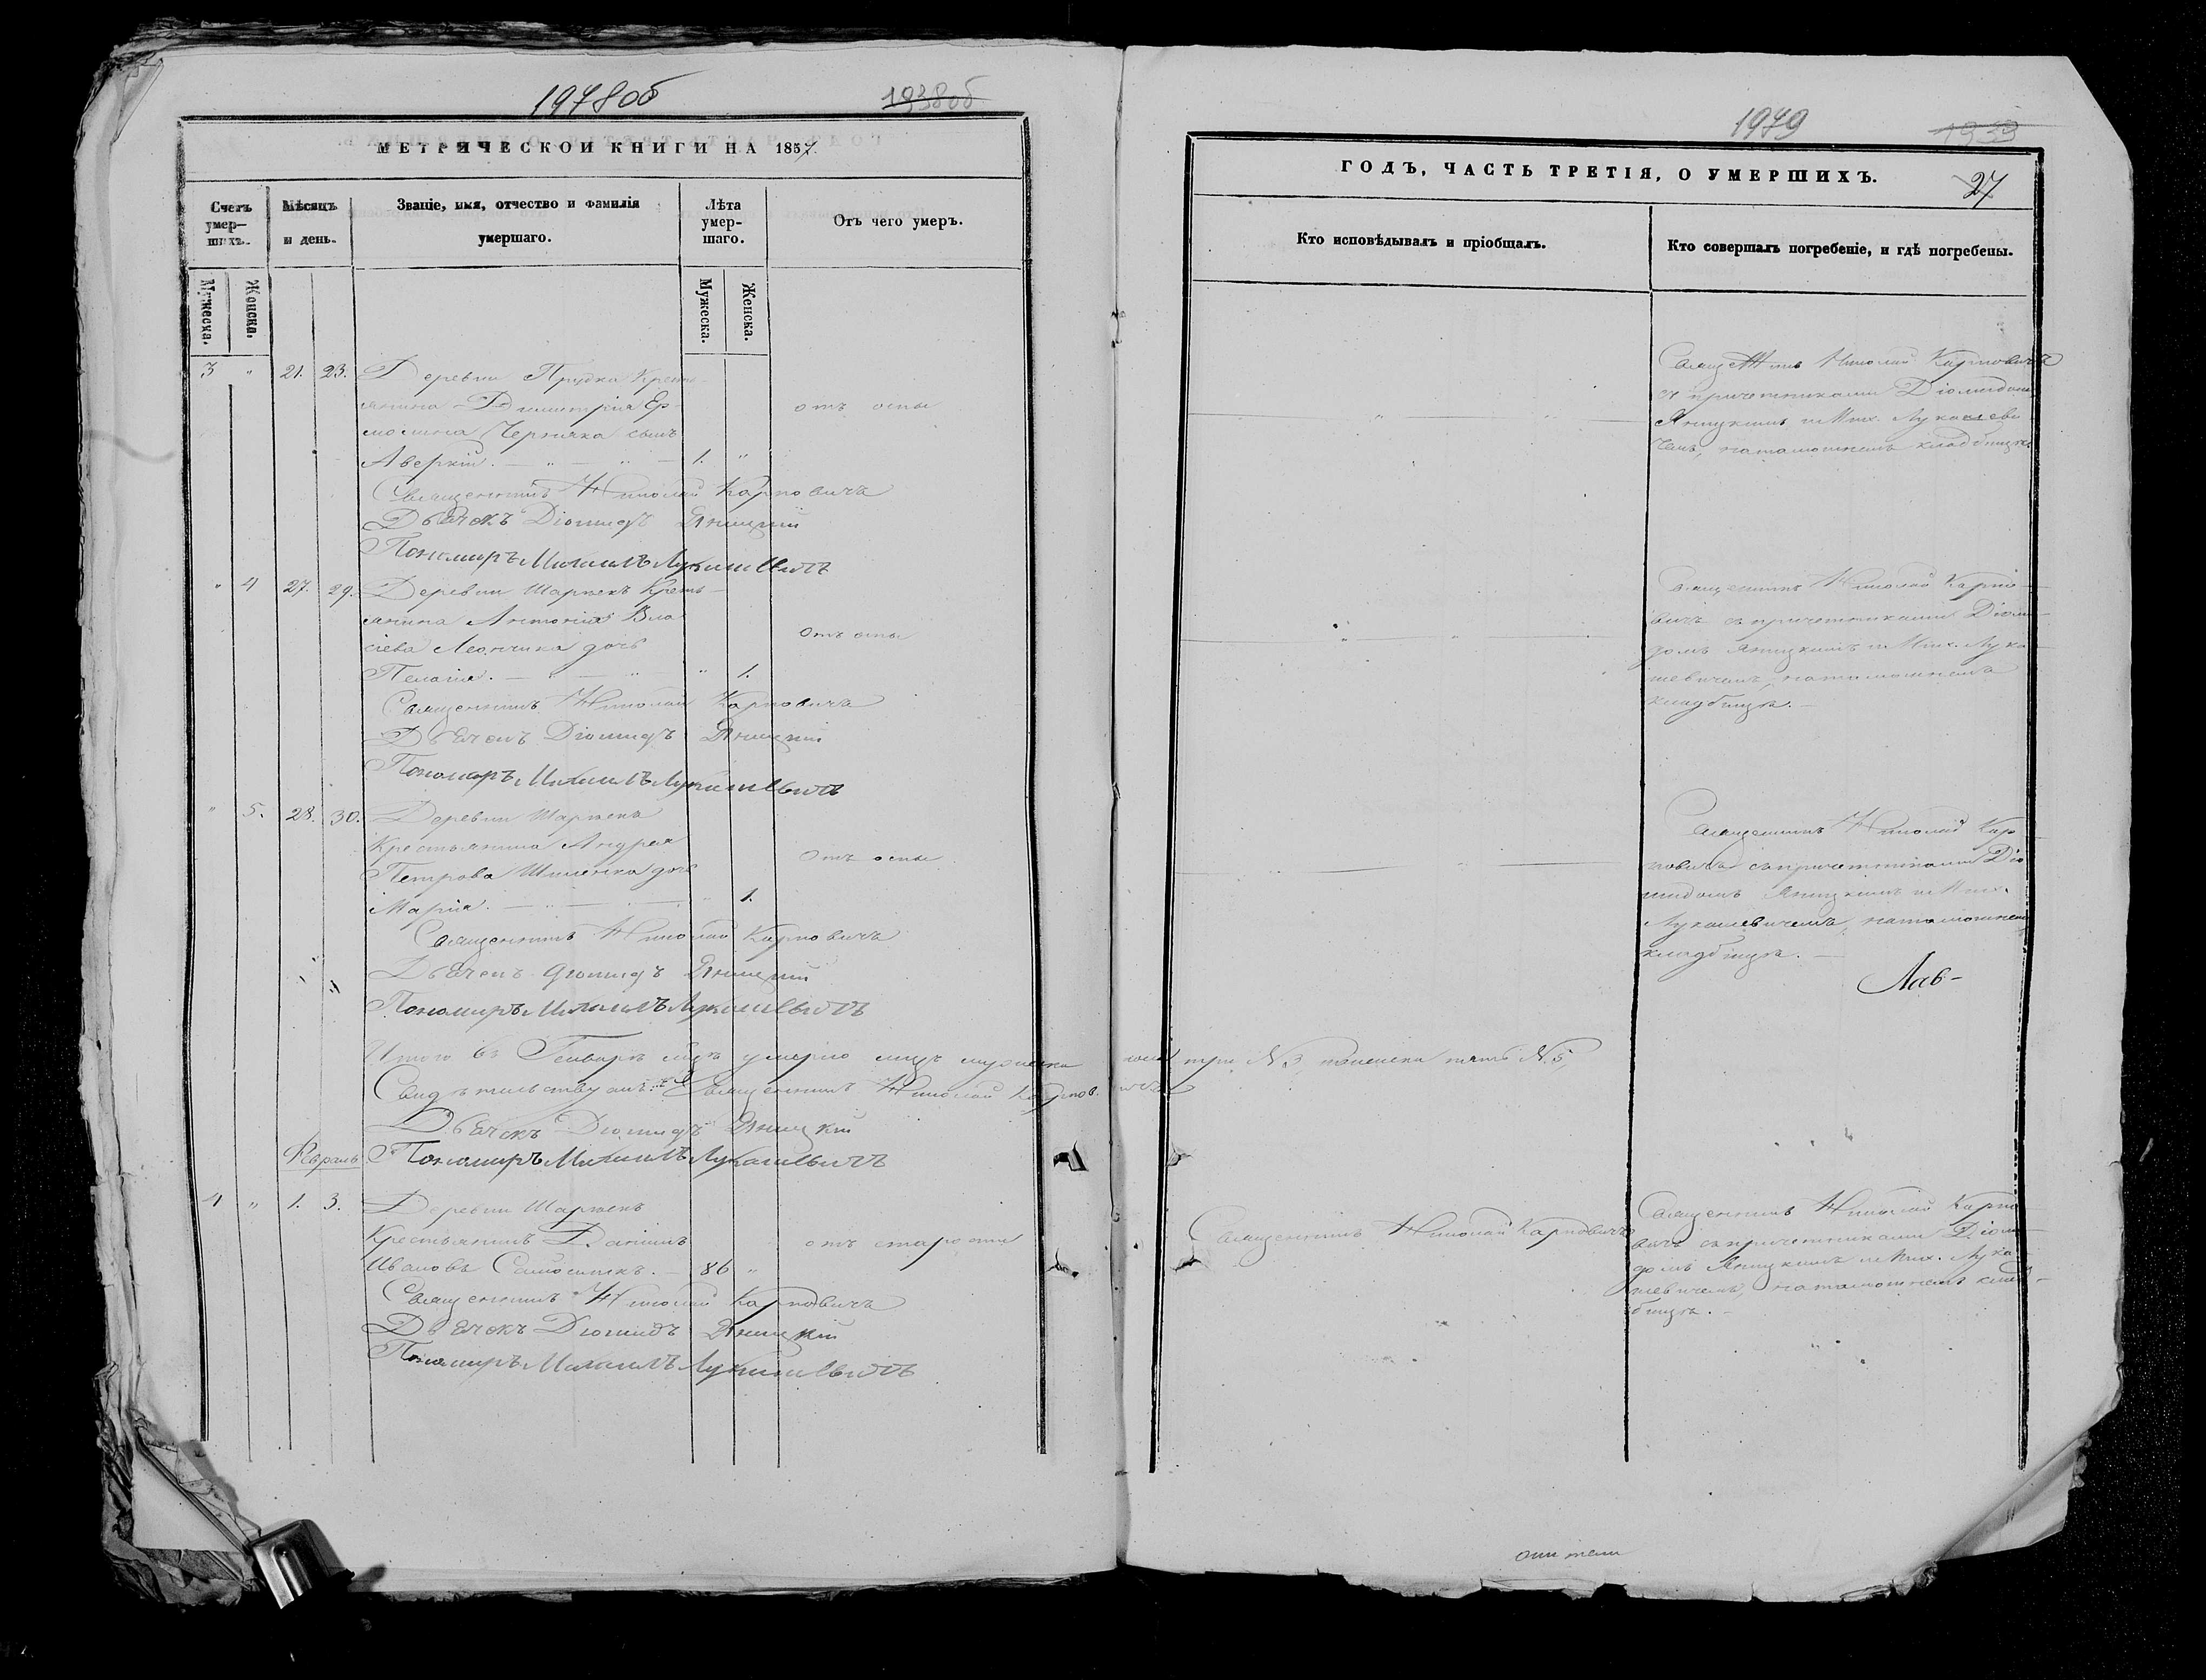 1978 об
1938 об
МЕТРИЧЕСКОЙ КНИГИ НА 1857
Счетъ умер-шихъ.
Мѣсяцъ и день.
Званіе, имя, отчество и фамилія умершаго.
Лѣта умер-шаго.
Отъ чего умеръ.
Мужеска.
Женска.
Мужеска.
Женска.
3 " 21. 23. Деревни Прудка Кресть-
янина Димитрія Ер-
молина Черничка сынъ
отъ оспы
Аверкій. — " — " — 1. "
Священникъ Николай Карповичъ
Дьячокъ Діомидъ Яницкій
Пономаръ Михаилъ Лукашевичъ
" 4 27. 29. Деревни Шарпекъ Кресть-
янина Антонія Вла-
сіева Леончика дочь
отъ оспы
Пелагія. — " — " 1.
Священникъ Николай Карповичъ
Дьячокъ Діомидъ Яницкій
Пономаръ Михаилъ Лукашевичъ
" 5. 28. 30. Деревни Шарпекъ
Крестьянина Андрея
Петрова Шиленка дочь
Отъ оспы
Марія. — " — " 1.
Священникъ Николай Карповичъ
Дьячокъ Діомидъ Яницкій
Пономаръ Михаилъ Лукашевичъ
Итого въ Генварѣ м-цѣ умерло лицъ мужеска пола три №3, женска пять №5,
Свидѣтельствуемъ: Священникъ Николай Карповичъ
Дьячокъ Діомидъ Яницкій
Февраль
Пономаръ Михаилъ Лукашевичъ
4 " 1. 3. Деревни Шарпекъ
Крестьянинъ Даніилъ
отъ старости
Ивановъ Самосюкъ. — 86 "
Священникъ Николай Карповичъ
Дьячокъ Діомидъ Яницкій
Пономаръ Михаилъ Лукашевичъ
1979
1939
ГОДЪ, ЧАСТЬ ТРЕТІЯ, О УМЕРШИХЪ.
27
Кто исповѣдывалъ и пріобщалъ.
Кто совершалъ погребеніе, и гдѣ погребены.
Священникъ Николай Карповичъ
съ причетниками Діомидомъ
Яницкимъ и Мих. Лукашеви-
чемъ, на тамошнемъ кладбищѣ.
Священникъ Николай Карпо-
вичъ съ причетниками Діоми-
домъ Яницкимъ и Мих. Лука-
шевичемъ, на тамошнемъ
кладбищѣ. —
Священникъ Николай Кар-
повичъ съ причетниками Діо-
мидомъ Яницкимъ и Мих.
Лукашевичемъ, на тамошнемъ
кладбищѣ. —
Лав-
Священникъ Николай Карповичъ
Священникъ Николай Карпо-
вичъ съ причетниками Діоми-
домъ Яницкимъ и Мих. Лука-
шевичемъ, на тамошнемъ клад-
бищѣ. —